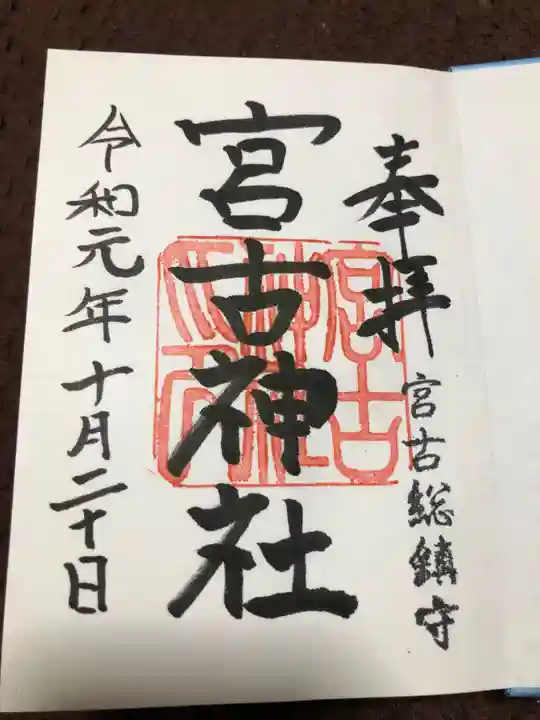 奉拝
宮古総鎮守
宮古神社
令和元年十月二十日